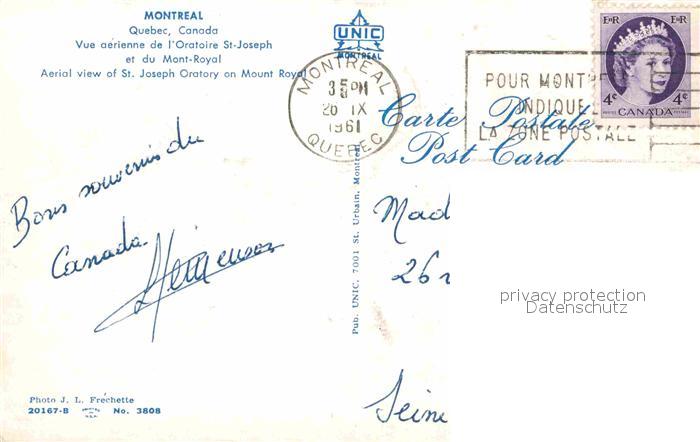 MONTREAL
Quebec, Canada
Vue aérienne de l'Oratoire St-Joseph
et du Mont-Royal
Aerial view of St. Joseph Oratory on Mount Royal
UNIC
MONTREAL
MONTREAL
35 PM
26 IX
1961
QUEBEC
POUR MONT
INDIQUE
LA ZONE POSTALE
E R E R
4¢ 4¢
POSTES CANADA POSTAGE
Carte Postale
Post Card
Bons souvenirs du
Canada
Mad
26 r
Seine
Pub. UNIC, 7001 St. Urbain, Montreal
privacy protection
Datenschutz
Photo J. L. Fréchette
20167-B No. 3808